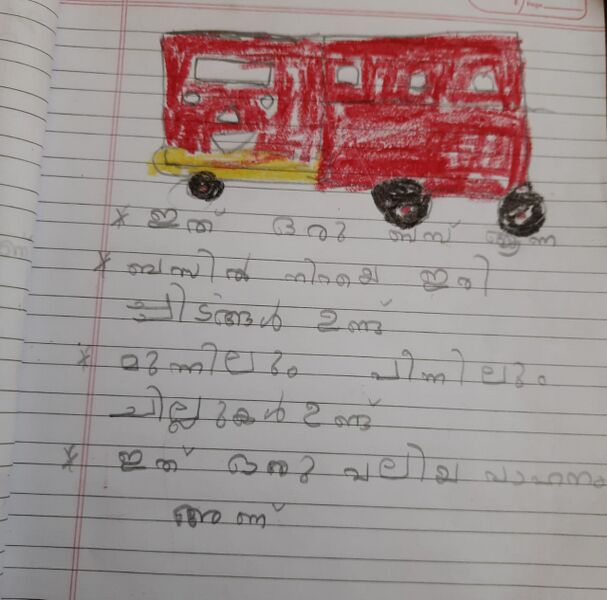 * ഇത് ഒരു ബസ് ആണ
* ബസിൽ നിറയെ ഇരി
പ്പിടങ്ങൾ ഉണ്ട്
* മുന്നിലും പിന്നിലും
ചില്ലുകൾ ഉണ്ട്
* ഇത് ഒരു വലിയ വാഹനം
ആണ്